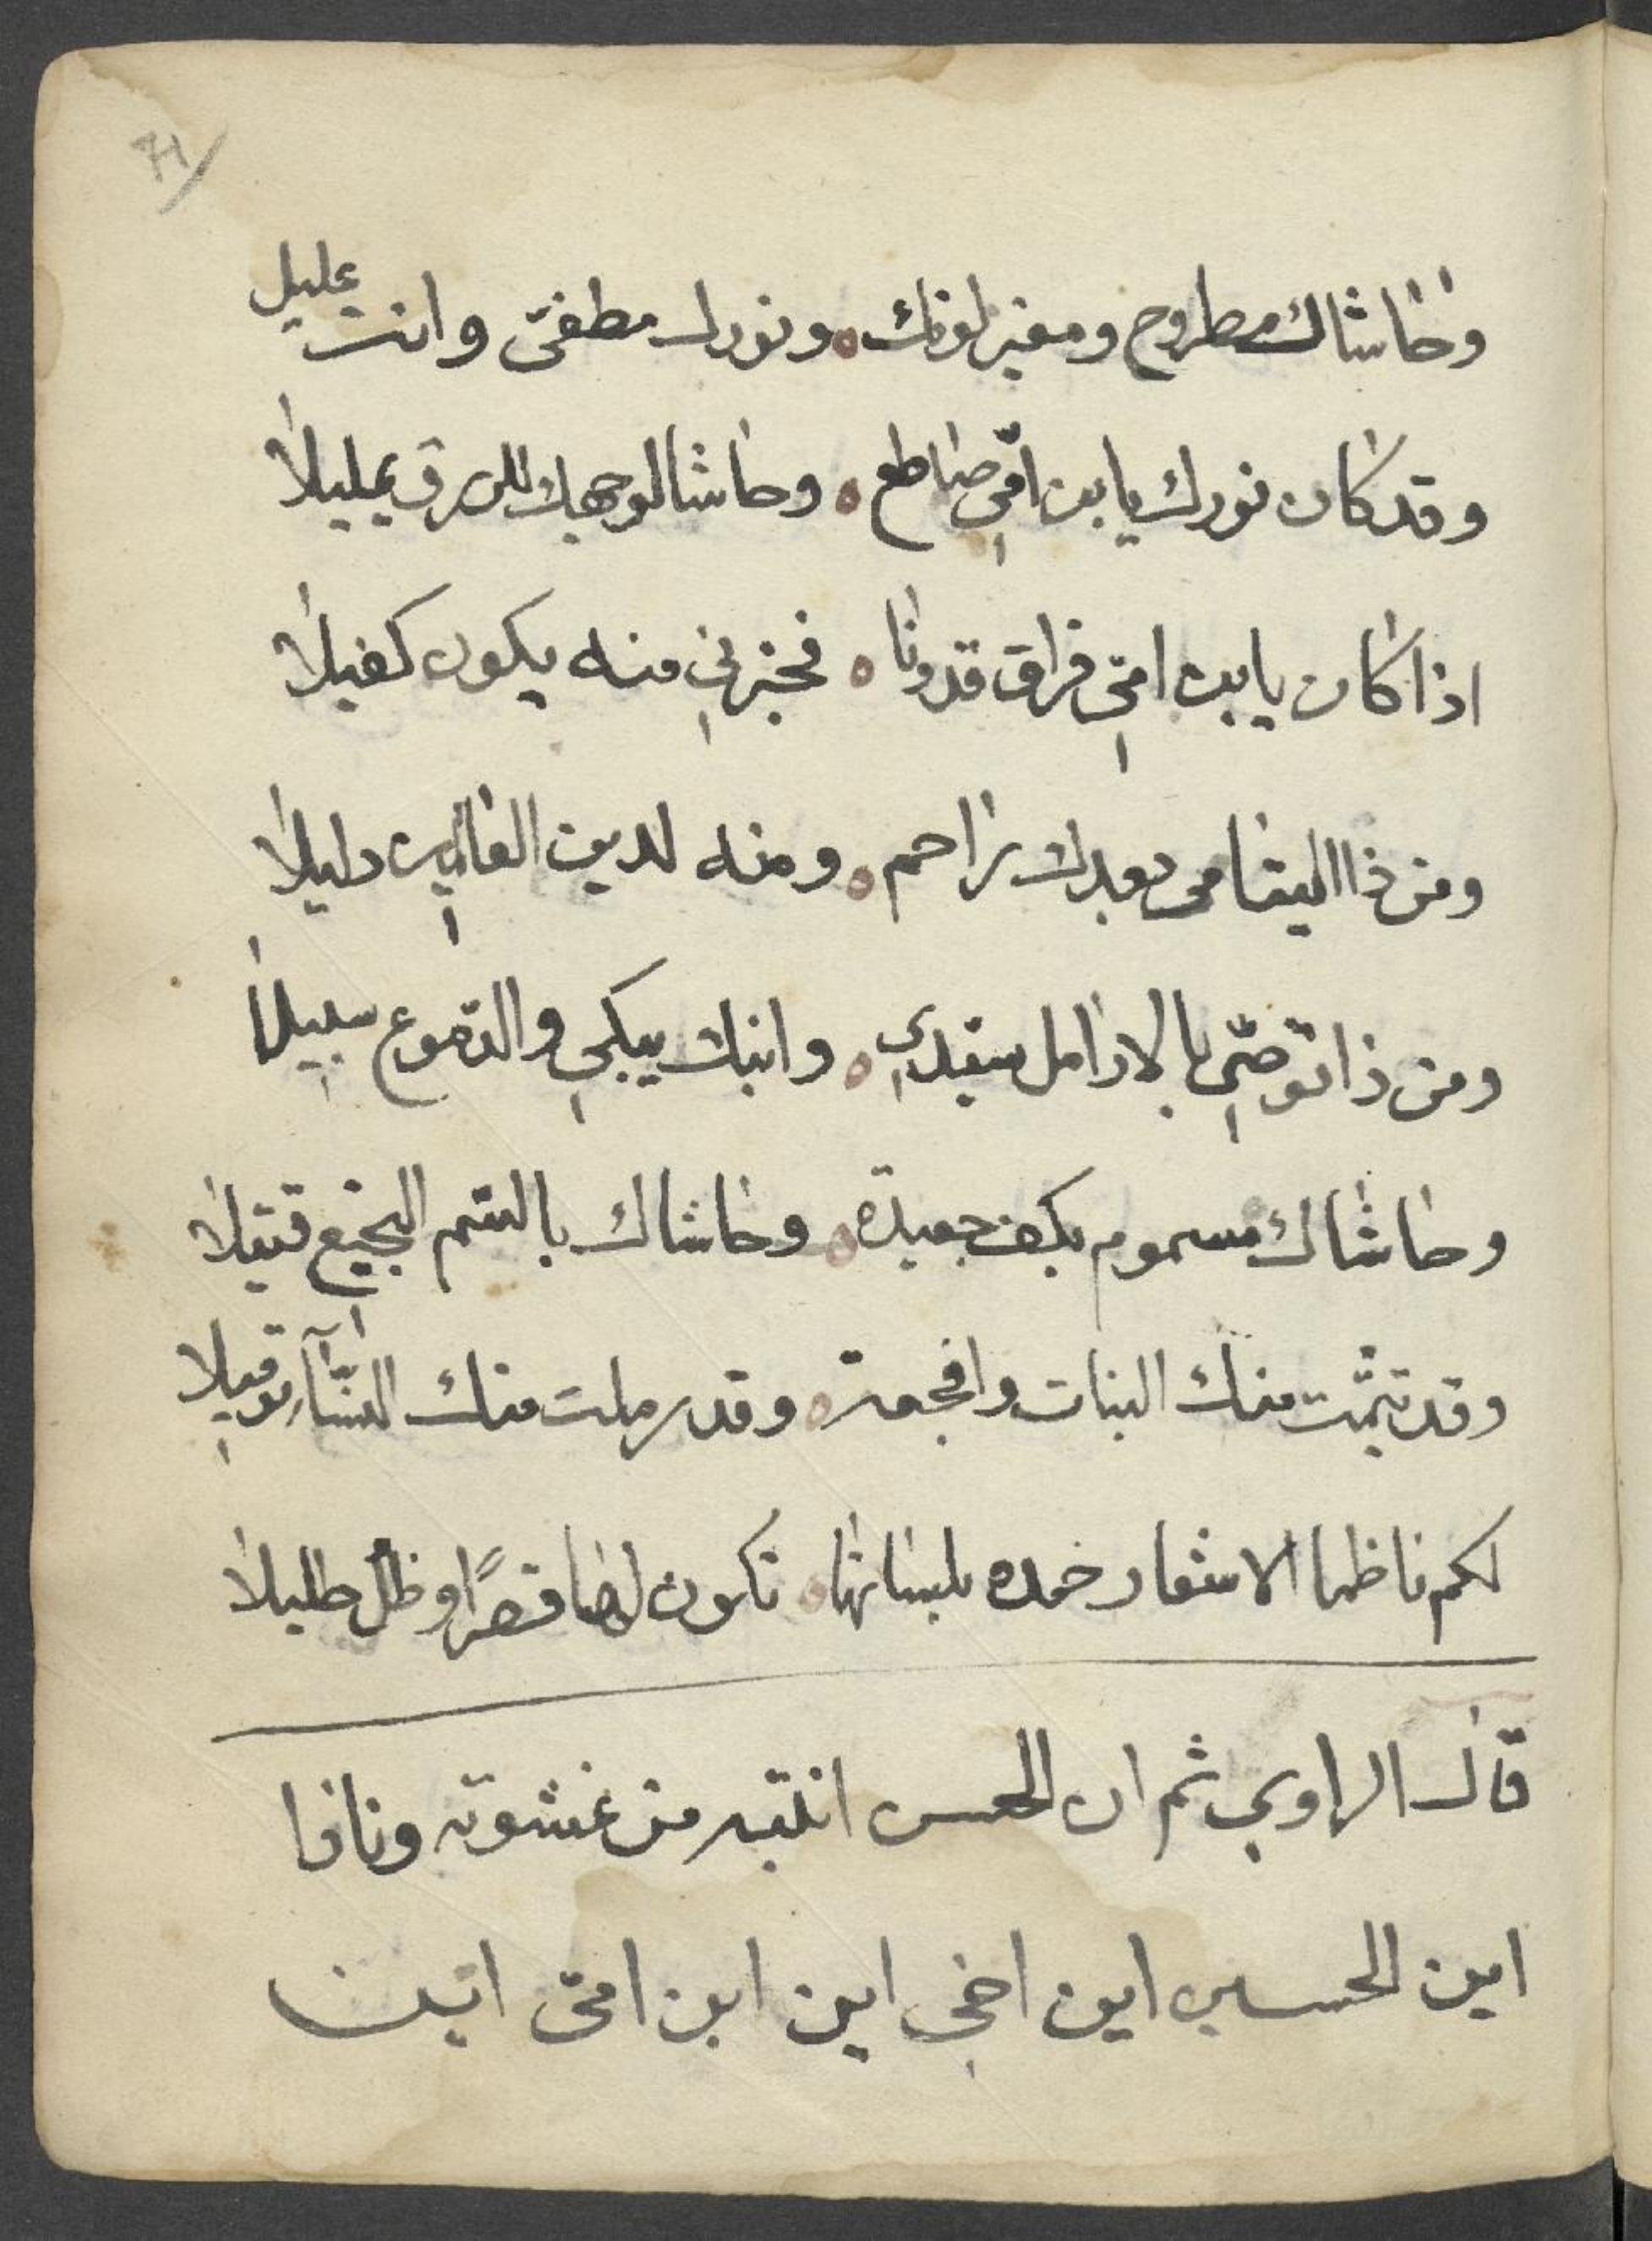 71
وحاشاك مطروح ومغير لونك ٥ ونورك مطفىّ وانت عليل
وقد كان نورك يا بن امّي صاطع ٥ وحاشا لوجهك للبرق يميلا
اذا كان يا بن امّي فراق قد دنا ٥ فخبرني منه يكون كفيلا
ومن ذا اليتامى بعدك راحم ٥ ومنه لدين دليلا
ومن ذا توصّي بالارامل سيّدي ٥ وابنك يبكي والدّموع سبيلا
وحاشاك مسموم بكف جعيدة ٥ وحاشاك بالسّم النجيع قتيلا
وقد يتّمت منك البنات وافجعة ٥ وقد رملت منك النسّآء
لكم ناظما الاشعار خمده ٥ تكون لها قصرًا وظل ظليلا
قال الراوي ثم ان الحسن انتبه من غشوته ونادا
اين الحسين اين اخي اين ابن امّى اين